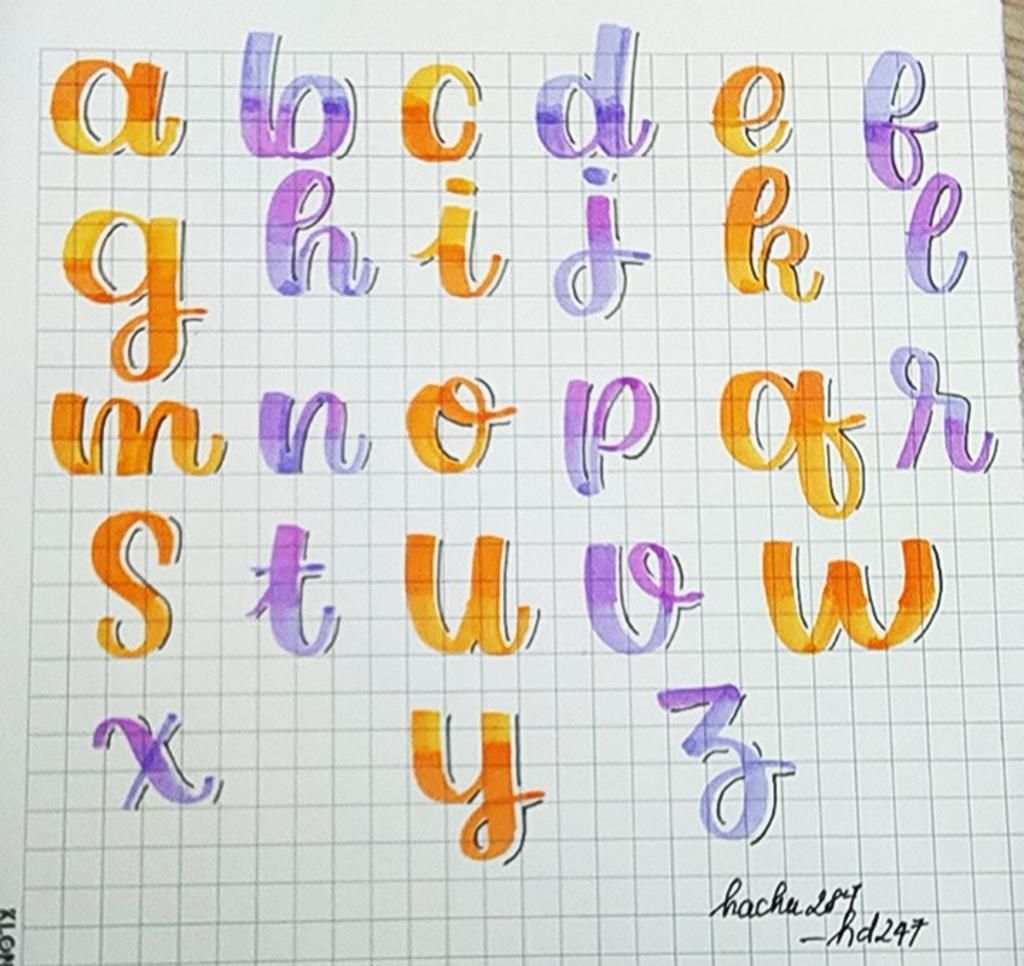 a b c d e f
g h i j k l
m n o p q r
S t u v w
x y z
hachu287
_hd247